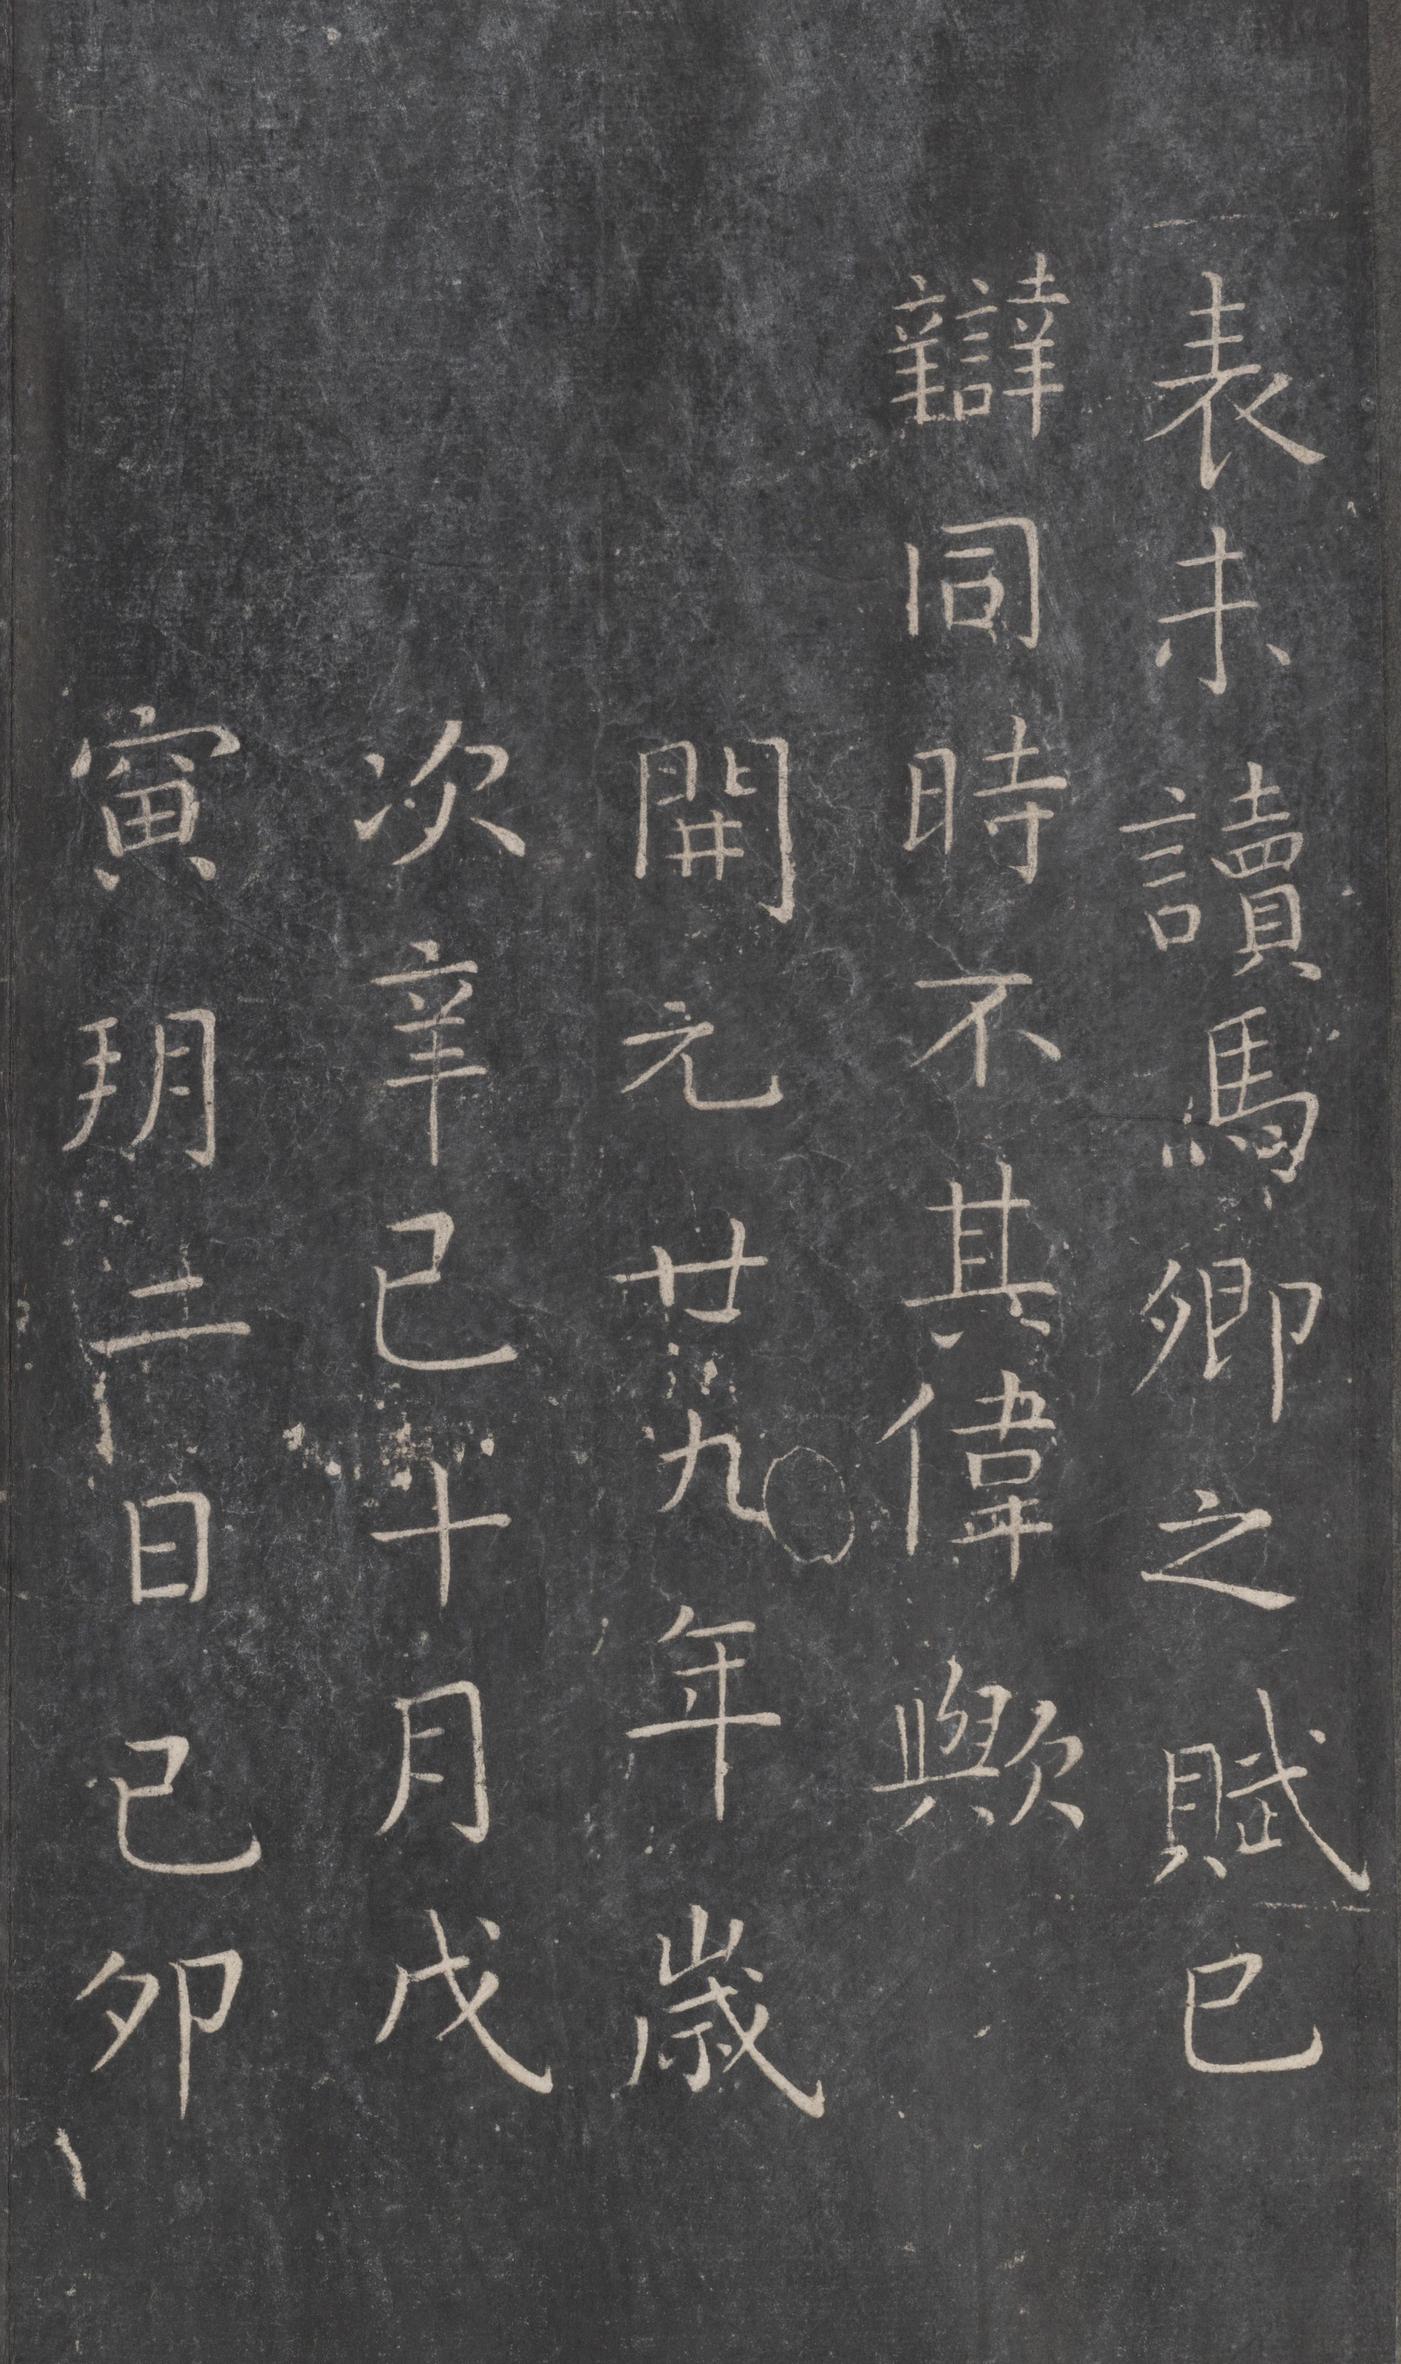 表未讀馬卿之賦已
辯同時不其偉歟
開元廿九年歲
次辛巳十月戊
寅朔二日己卯